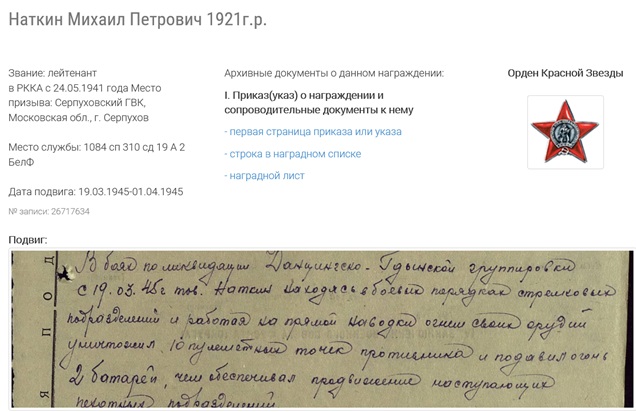 Наткин Михаил Петрович 1921г.р.
Звание: лейтенант
в РККА с 24.05.1941 года Место
призыва: Серпуховский ГВК,
Московская обл., г. Серпухов
Место службы: 1084 сп 310 сд 19 А 2
БелФ
Дата подвига: 19.03.1945-01.04.1945
№ записи: 26717634
Архивные документы о данном награждении:
I. Приказ(указ) о награждении и
сопроводительные документы к нему
- первая страница приказа или указа
- строка в наградном списке
- наградной лист
Орден Красной Звезды
Подвиг:
В боях по ликвидации Данцингско-Гдынской группировки
с 19.03.45г тов. Наткин находясь в боевых порядках стрелковых
подразделений и работая на прямой наводки огнем своих орудий
уничтожил 10 пулеметных точек противника и подавил огонь
2 батарей, чем обеспечивал продвижение наступающих
пехотных подразделений